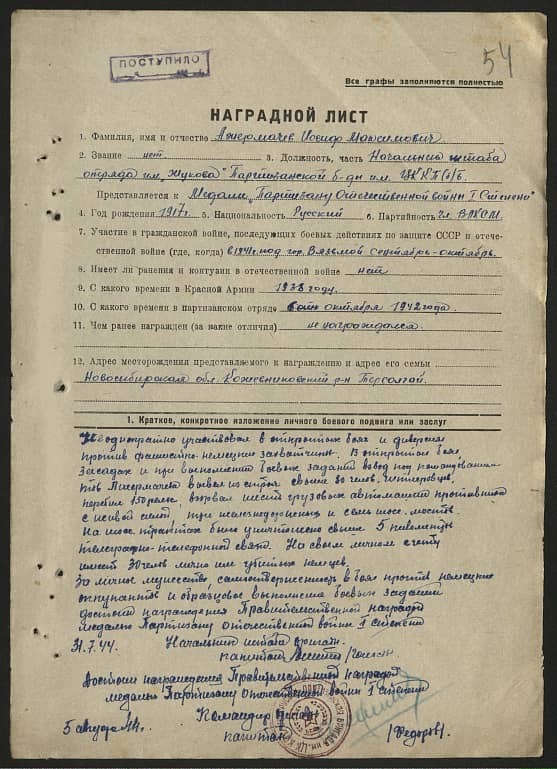 ПОСТУПИЛО
54
Все графы заполняются полностью
НАГРАДНОЙ ЛИСТ
1. Фамилия, имя и отчество Иосиф Максимович.
2. Звание нет 3. Должность, часть Начальник штаба
отряда им. "Жукова" Партизанской б-ды им. ЦК КП(б)Б.
Представляется к Медали "Партизану Отечественной войны I степени"
4. Год рождения 1917 г. 5. Национальность Русский 6. Партийность чл. ВЛКСМ.
7. Участие в гражданской войне, последующих боевых действиях по защите СССР и отече-
ственной войне (где, когда) в 1941 г. под гор. Вязьмой сентябрь-октябрь.
8. Имеет ли ранения и контузии в отечественной войне нет
9. С какого времени в Красной Армии 1938 году.
10. С какого времени в партизанском отряде октября 1942 года.
11. Чем ранее награжден (за какие отличия) не награждался.
12. Адрес месторождения представляемого к награждению и адрес его семьи
Новосибирская обл. Кожевниковский р-н
1. Краткое, конкретное изложение личного боевого подвига или заслуг
Неоднократно участвовал в открытых боях и диверсиях
против фашистко-немецких захватчиков. В открытом бою,
засадах и при выполнении боевых заданий взвод под командовани-
вывел из строя свыше 80 челов. гитлеровцев,
перебил 150 рельс, взорвал шесть грузовых автомашин противника
с живой силой, три железнодорожных и семь шос. мостов.
На шос. трактах было уничтожено свыше 5 километр
телеграфно-телефонной связи. На своём личном счету
имеет 30 челов лично им убитых немцев.
За личное мужество, самоотверженность в боях против немецких
оккупантов и образцовое выполнение боевых заданий
достоин награждения Правительственной наградой
медалью Партизану отечественной войны I степени
31.7.44. Начальник штаба бригады
капитан
Достоин награждения Правительственной наградой
медалью Партизану отечественной войны I степени
Командир бригады
5 августа 44 г. капитан /Федоров/.